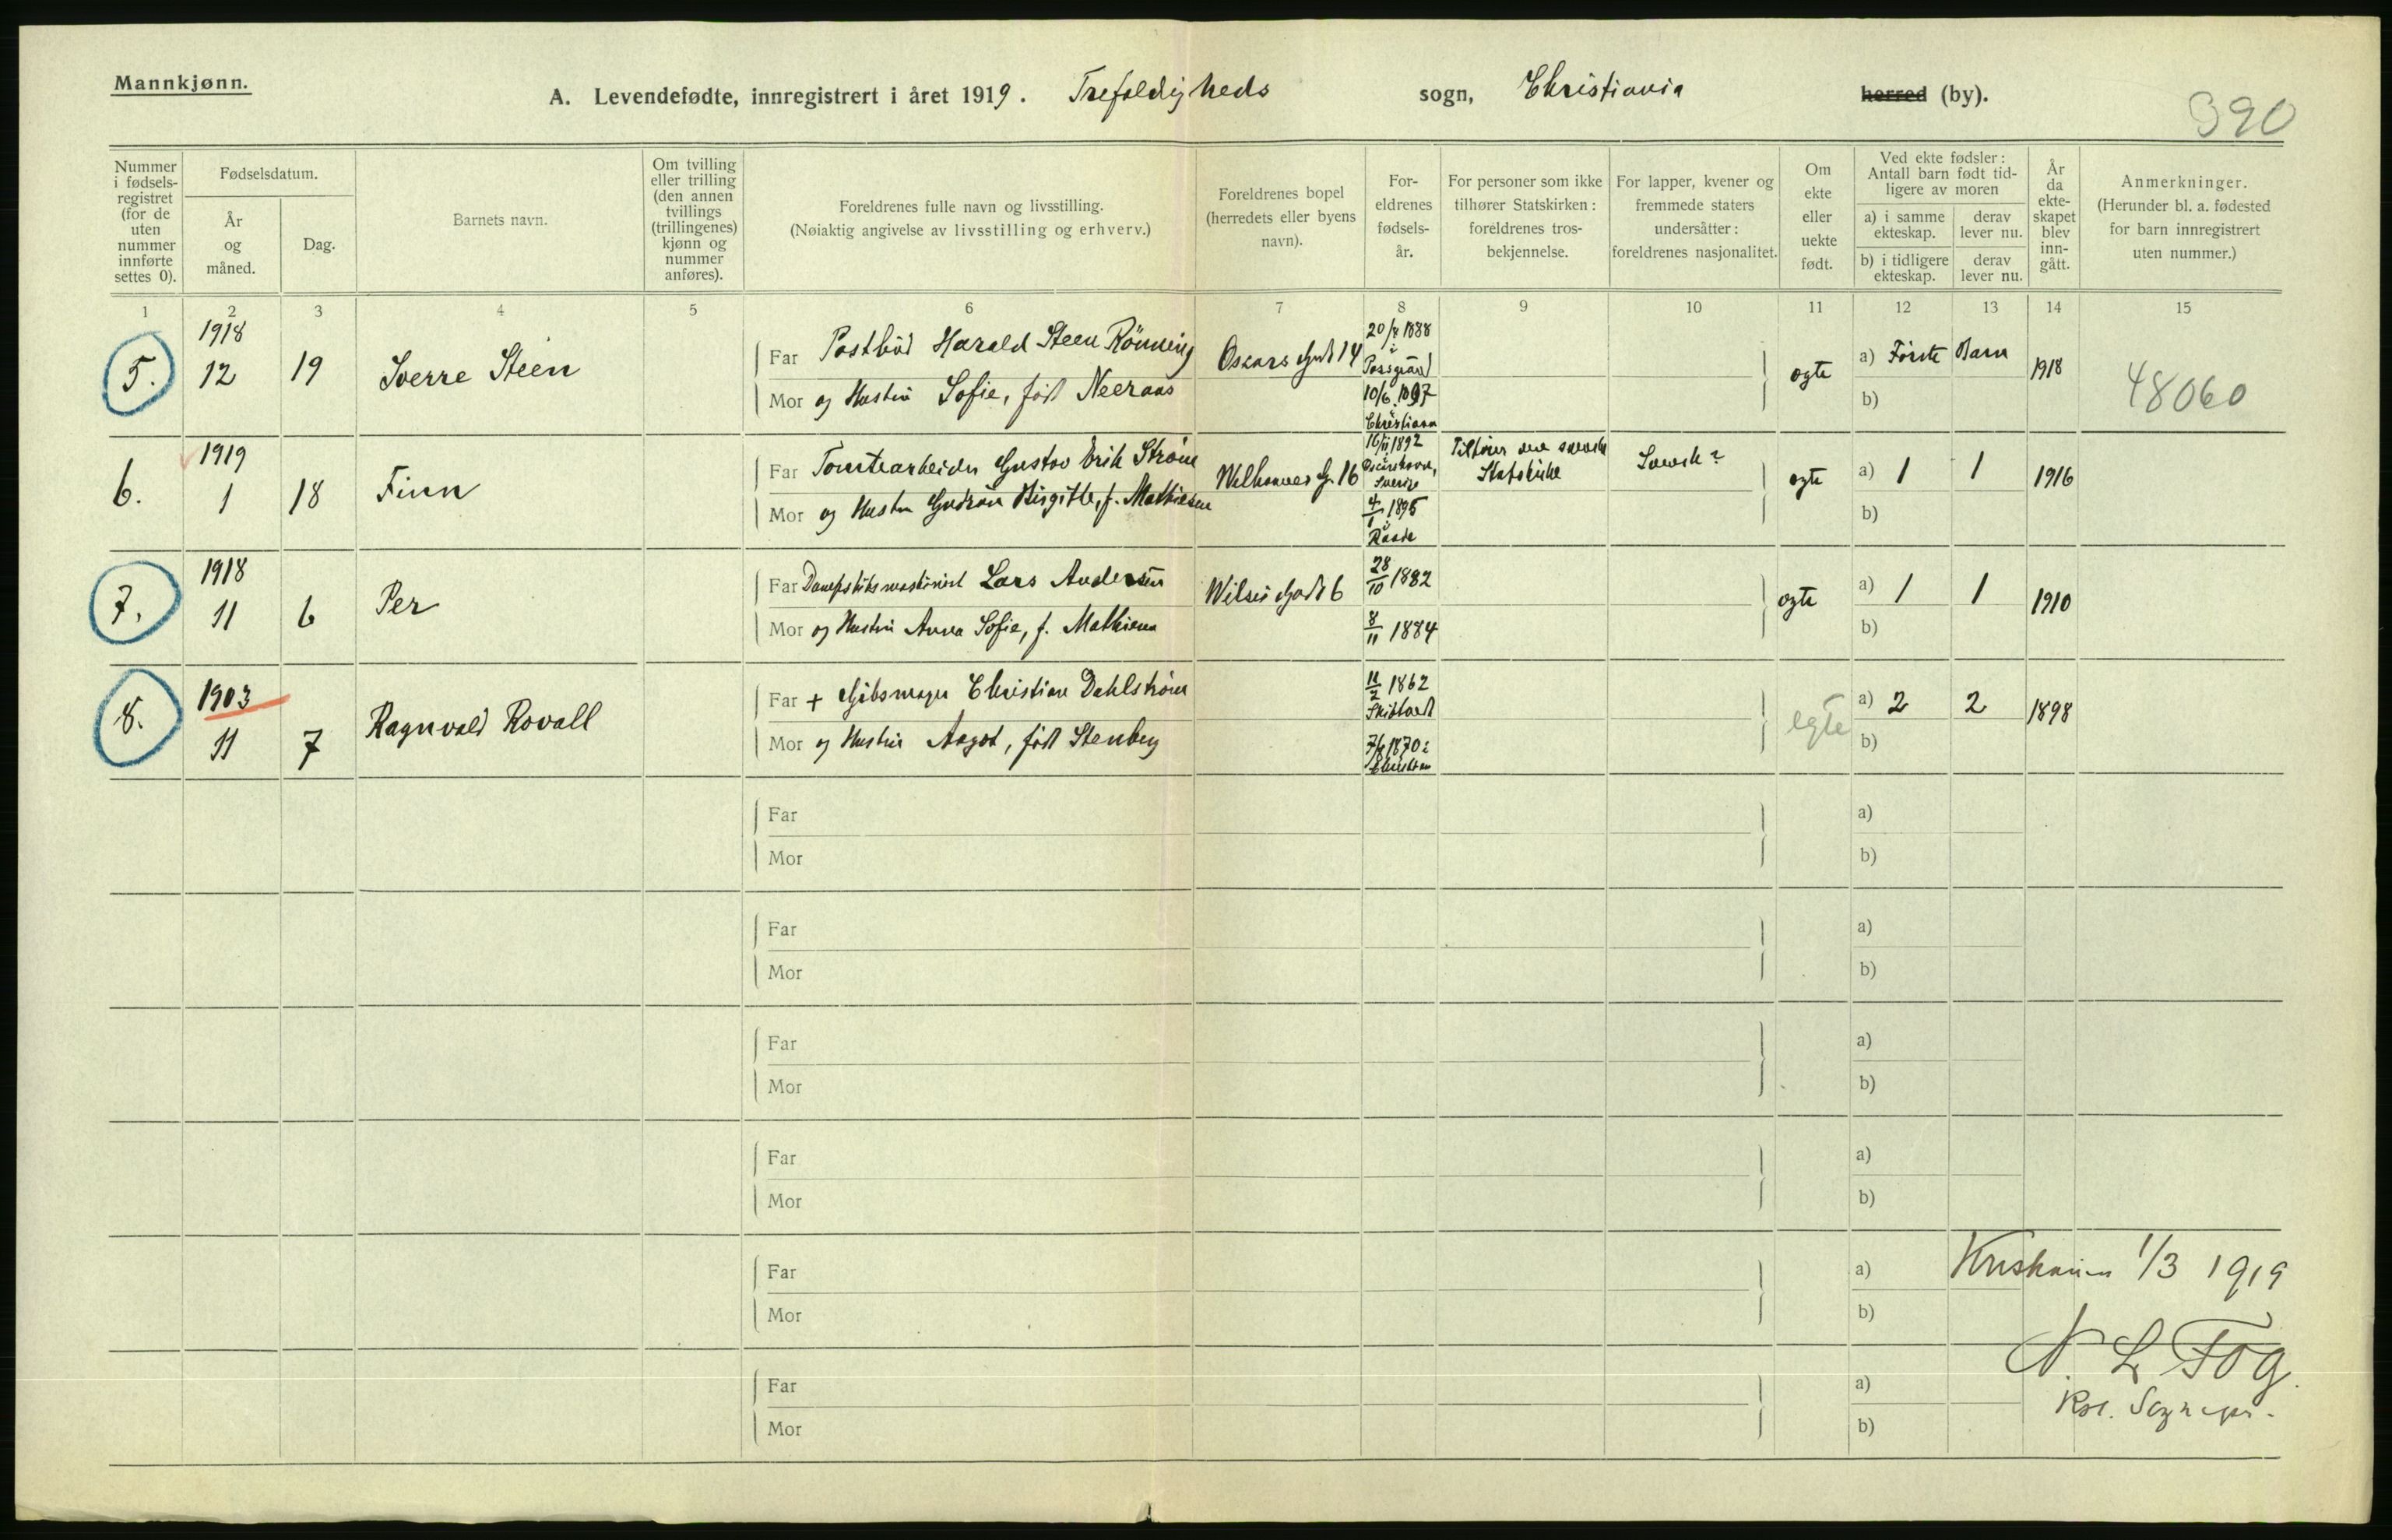 Mannkjønn.
A. Levendefødte, innregistrert i året 1919. Trefoldigheds sogn, Christiania herred (by).
390
Nummer i fødsels-registret (for de uten nummer innførte settes 0).
Fødselsdatum.
År og måned.
Dag.
Barnets navn.
Om tvilling eller trilling (den annen tvillings (trillingenes) kjønn og nummer anføres).
Foreldrenes fulle navn og livsstilling.
(Nøiaktig angivelse av livsstilling og erhverv.)
Foreldrenes bopel (herredets eller byens navn).
For-eldrenes fødsels-år.
For personer som ikke tilhører Statskirken: foreldrenes tros-bekjennelse.
For lapper, kvener og fremmede staters undersåtter: foreldrenes nasjonalitet.
Om ekte eller uekte født.
Ved ekte fødsler: Antall barn født tid-ligere av moren
a) i samme ekteskap.
derav lever nu.
b) i tidligere ekteskap.
derav lever nu.
År da ekte-skapet blev inn-gått.
Anmerkninger.
(Herunder bl. a. fødested for barn innregistrert uten nummer.)
1 2 3 4 5 6 7 8 9 10 11 12 13 14 15
5. 1918 12 19 Sverre Steen
Far Postbud Harald Steen Rönning Oscars Gade 14 20/4 1888 i Porsgrund
Mor og Hustru Sofie, født Neeraas 10/6 1897 Christiania
egte a) Første Barn b) 1918 48060
6. 1919 1 18 Finn
Far Tomtearbeider Gustav Erik Strøm 16/11 1892 Sverige
Mor og Hustru Gudrun Birgitte, f. Mathiesen 4/1 1895 i Raade
Tilhører den svenske Statskirke
Svensk?
egte a) 1 1 b) 1916
7. 1918 11 6 Per
Far Lars Andersen Wilses Gade 6 28/10 1882
Mor og Hustru Anna Sofie, f. Mathisen 8/11 1884
egte a) 1 1 b) 1910
8. 1903 11 7 Ragnvald Rovall
Far + Gibsmager Christian Dahlstrøm 11/2 1862
Mor og Hustru Aagot, født Stenberg 7/8 1870 i
egte a) 2 2 b) 1898
Far a)
Mor b)
Far a)
Mor b)
Far a)
Mor b)
Far a)
Mor b)
Far a)
Mor b)
Kristiania 1/3 1919
Far a)
Mor b)
N. L. Fog.